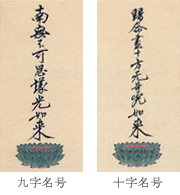 南無不可思議光如来
九字名号
歸命盡十方无㝵光如来
十字名号